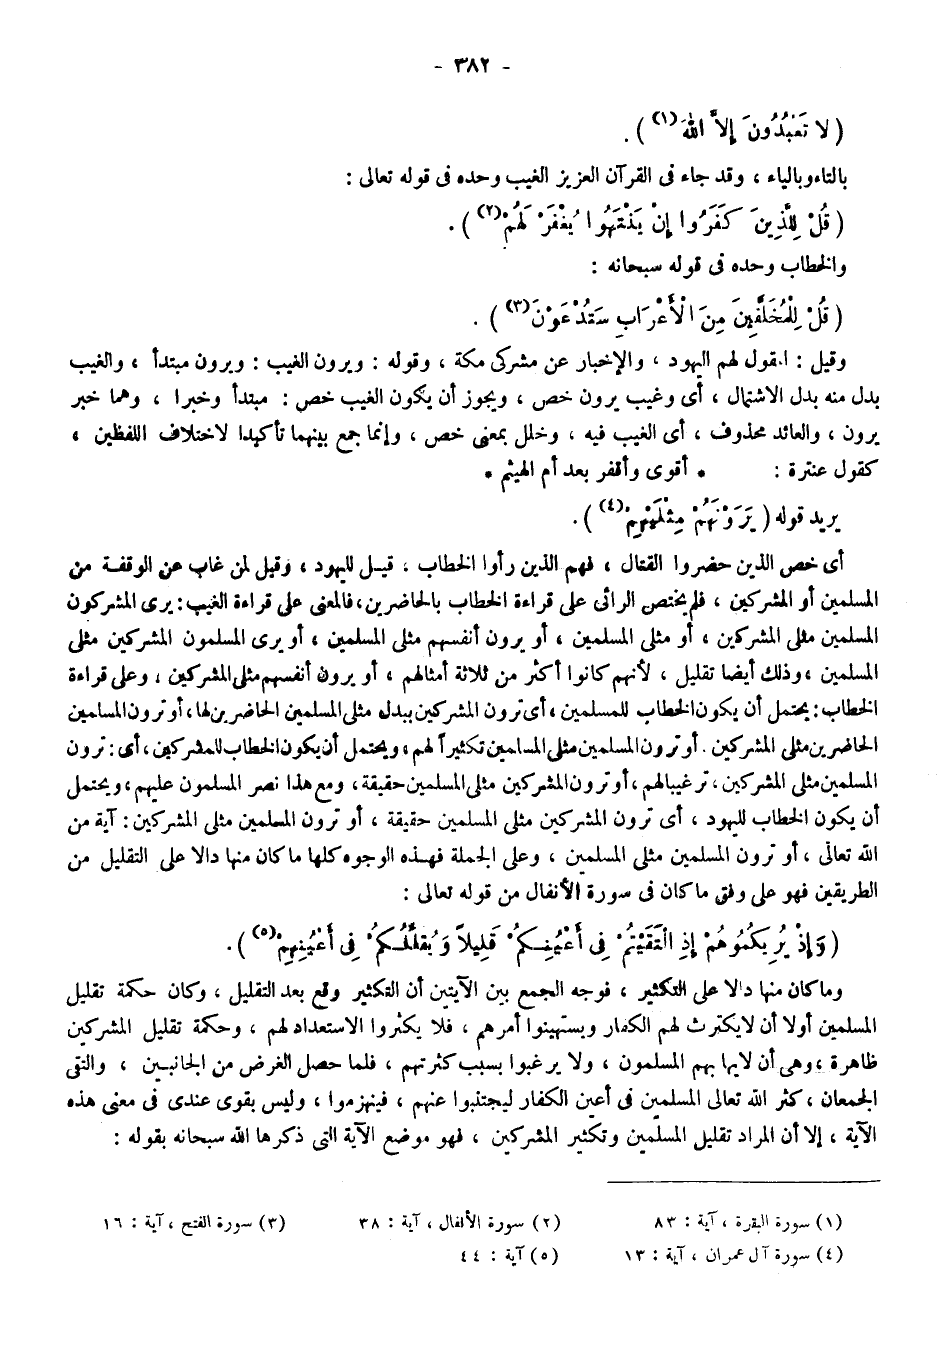 - ٣٨٢ -
( لا تَعْبُدُونَ إلاَّ اللهَ(١) ) .
بالتاء وبالياء ، وقد جاء فى القرآن العزيز الغيب وحده فى قوله تعالى :
( قُلْ لِلَّذِينَ كَفَرُوا إنْ يَنْتَهُوا يُغْفَرْ لَهُمْ(٢) ) .
والخطاب وحده فى قوله سبحانه :
( قُلْ لِلْمُخَلَّفِينَ مِنَ الْأَعْرَابِ سَتُدْعَوْنَ(٣) ) .
وقيل : المقول لهم اليهود ، والإخبار عن مشركى مكة ، وقوله : ويرون الغيب : ويرون مبتدأ ، والغيب
بدل منه بدل الاشتمال ، أى وغيب يرون خص ، ويجوز أن يكون الغيب خص : مبتدأ وخبرا ، وهما خبر
يرون ، والعائد محذوف ، أى الغيب فيه ، وخلل بمعنى خص ، وإنما جمع بينهما تأكيدا لاختلاف اللفظين ،
كقول عنترة : * أقوى وأقفر بعد أم الهيثم *
يريد قوله ( يَرَوْنَهُمْ مِثْلَيْهِمْ(٤) ) .
أى خص الذين حضروا القتال ، فهم الذين رأوا الخطاب ، قيل لليهود ، وقيل لمن غاب عن الوقفة من
المسلمين أو المشركين ، فلم يختص الرائى على قراءة الخطاب بالحاضرين ، فالمعنى على قراءة الغيب : يرى المشركون
المسلمين مثلى المشركين ، أو مثلى المسلمين ، أو يرون أنفسهم مثلى المسلمين ، أو يرى المسلمون المشركين مثلى
المسلمين ، وذلك أيضا تقليل ، لأنهم كانوا أكثر من ثلاثة أمثالهم ، أو يرون أنفسهم مثلى المشركين ، وعلى قراءة
الخطاب : يحتمل أن يكون الخطاب للمسلمين ، أى ترون المشركين ببدل مثلى المسلمين الحاضرين لها ، أو ترون المسلمين
الحاضرين مثلى المشركين . أو ترون المسلمين مثلى المسلمين تكثيراً لهم ، ويحتمل أن يكون الخطاب للمشركين ، أى : ترون
المسلمين مثلى المشركين ، ترغيبا لهم ، أو ترون المشركين مثلى المسلمين حقيقة ، ومع هذا نصر المسلمون عليهم ، ويحتمل
أن يكون الخطاب لليهود ، أى ترون المشركين مثلى المسلمين حقيقة ، أو ترون المسلمين مثلى المشركين : آية من
الله تعالى ، أو ترون المسلمين مثلى المسلمين ، وعلى الجملة فهذه الوجوه كلها ما كان منها دالا على التقليل من
الطريقين فهو على وفق ما كان فى سورة الأنفال من قوله تعالى :
( وَإذْ يُرِيكُمُوهُمْ إذِ الْتَقَيْتُمْ فِى أَعْيُنِكُمْ قَلِيلاً وَيُقَلِّلُكُمْ فِى أَعْيُنِهِمْ(٥) ) .
وما كان منها دالا على التكثير ، فوجه الجمع بين الآيتين أن التكثير وقع بعد التقليل ، وكان حكمة تقليل
المسلمين أولا أن لا يكترث لهم الكفار ويستهينوا أمرهم ، فلا يكثروا الاستعداد لهم ، وحكمة تقليل المشركين
ظاهرة ، وهى أن لا يهابهم المسلمون ، ولا يرغبوا بسبب كثرتهم ، فلما حصل الغرض من الجانبين ، والتقى
الجمعان ، كثر الله تعالى المسلمين فى أعين الكفار ليجتذبوا عنهم ، فينهزموا ، وليس يقوى عندى فى معنى هذه
الآية ، إلا أن المراد تقليل المسلمين وتكثير المشركين ، فهو موضع الآية التى ذكرها الله سبحانه بقوله :
(١) سورة البقرة ، آية : ٨٣ (٢) سورة الأنفال ، آية : ٣٨ (٣) سورة الفتح ، آية : ١٦
(٤) سورة آل عمران ، آية : ١٣ (٥) آية : ٤٤